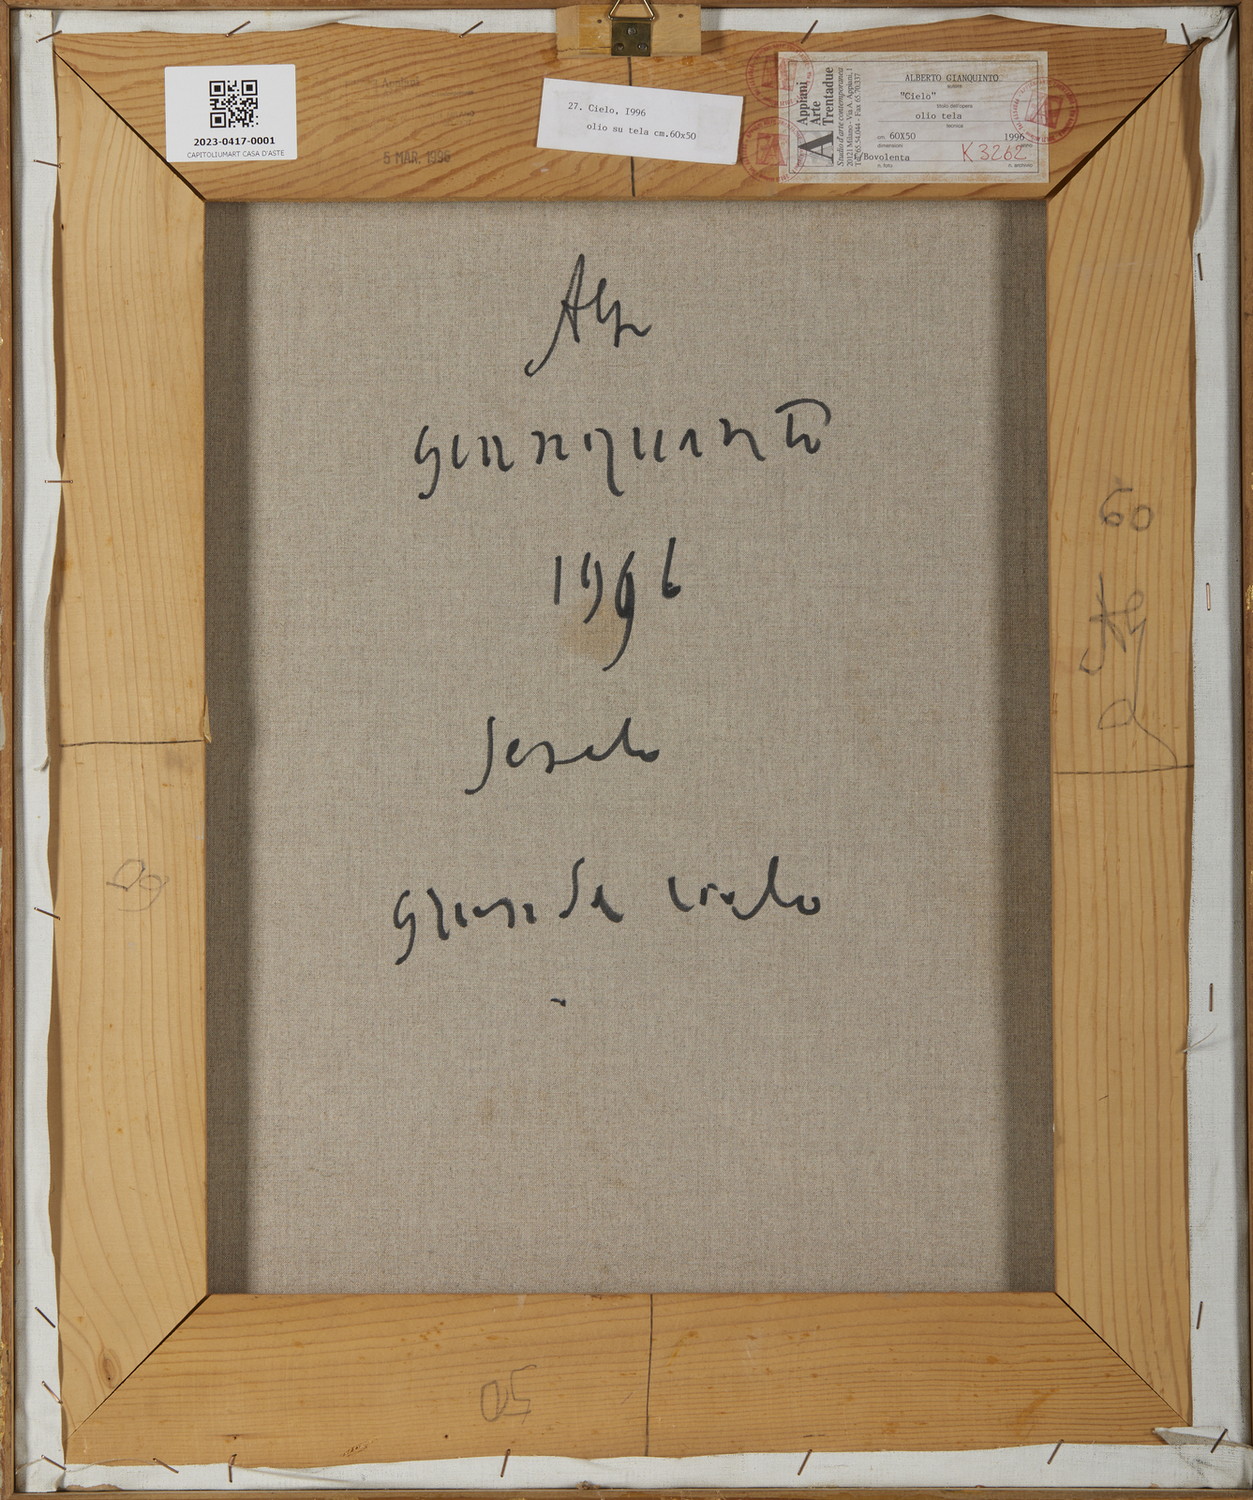 2023-0417-0001
CAPITOLIUMART CASA D'ASTE
5 MAR. 1996
27. Cielo, I996
olio su tela cm.60x50
Appiani
Arte
Trentadue
Studio d'arte contemporanea
20121 Milano - Via A. Appiani, 1
ALBERTO GIANQUINTO
autore
"Cielo"
titolo dell'opera
olio tela
tecnica
cm. 60X50
1996
dimensioni
anno
F/Bovolenta
K 3262
n. foto
n. archivio
gianquinto
1996
Jesolo
grande cielo
60
60
50